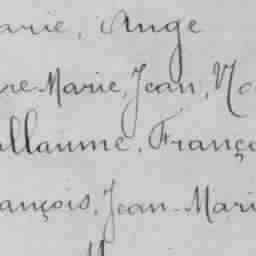 arie, Ange
re Marie, Jean, No
illaume, Franço
ançois, Jean-Mari